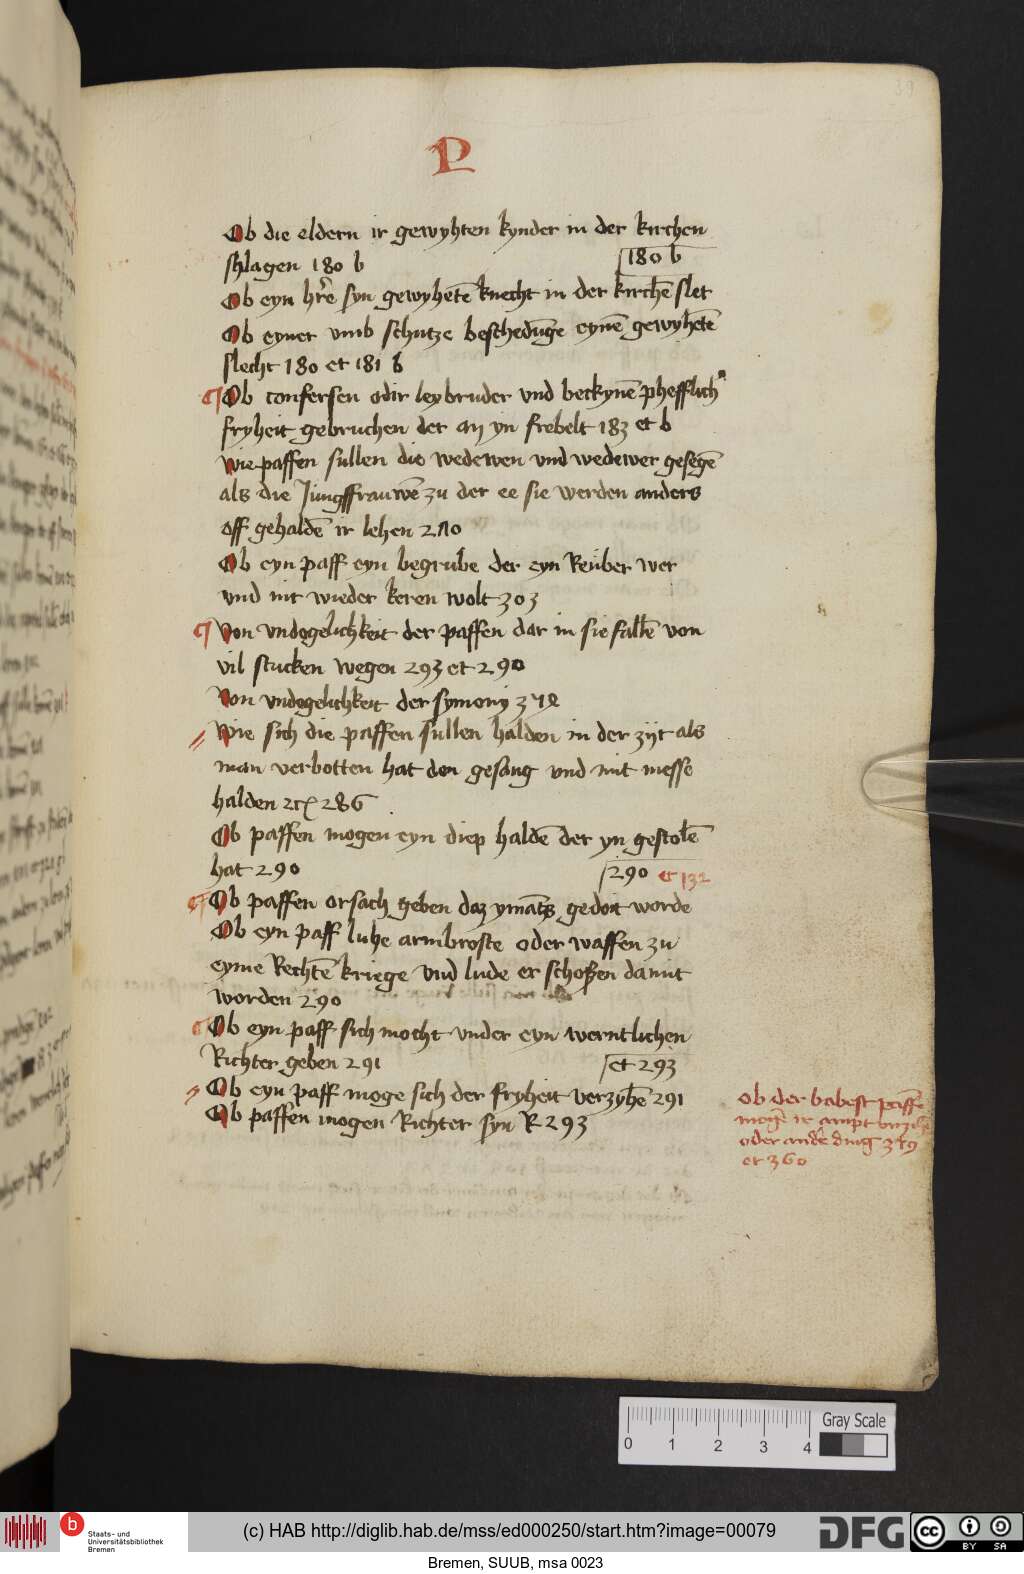 39
P
Ob die eldern ir gewyhten kynder in der kirchen
schlagen 180 b
180 b
Ob eyn hr̄e syn gewyhetē knecht in der kirchē slet
Ob eyner vmb schutze beschedūge eynē gewyhetē
slecht 180 et 181 b
Ob confersen odir leybruder vnd beckynē phefflich
fryheit gebruchen der an yn frebelt 183 et b
wie paffen sullen die wedewen vnd wedewer gesegē
als die Jungffrauwē zu der ee sie werden anders
off gehaldē ir lehen
Ob eyn paff eyn begrube der eyn Reuber wer
vnd nit wieder keren wolt 303
Von vndogelichkeit der paffen dar in sie fallē von
vil stucken wegen 293 et 290
Von vndogelichkeit der symony
Wie sich die paffen sullen halden in der zijt als
man verbotten hat den gesang vnd nit messe
halden 286
Ob paffen mogen eyn diep haldē der yn gestolē
hat 290
290 et 132
Ob paffen orsach geben daz ymātz gedoit worde
Ob eyn paff luhe armbroste oder waffen zu
eyme Rechtē kriege vnd lude er schoßen damit
worden 290
Ob eyn paff sich mocht vnder eyn werntlichen
Richter geben 291
et 293
Ob eyn paff moge sich der fryheit verzyhē 291
Ob paffen mogen Richter syn R 293
ob der babest paffē
mogē ir ampt
oder andr̄e ding
et 360
0 1 2 3 4 Gray Scale
b Staats- und
Universitätsbibliothek
Bremen
(c) HAB http://diglib.hab.de/mss/ed000250/start.htm?image=00079
DFG
cc BY SA
Bremen, SUUB, msa 0023